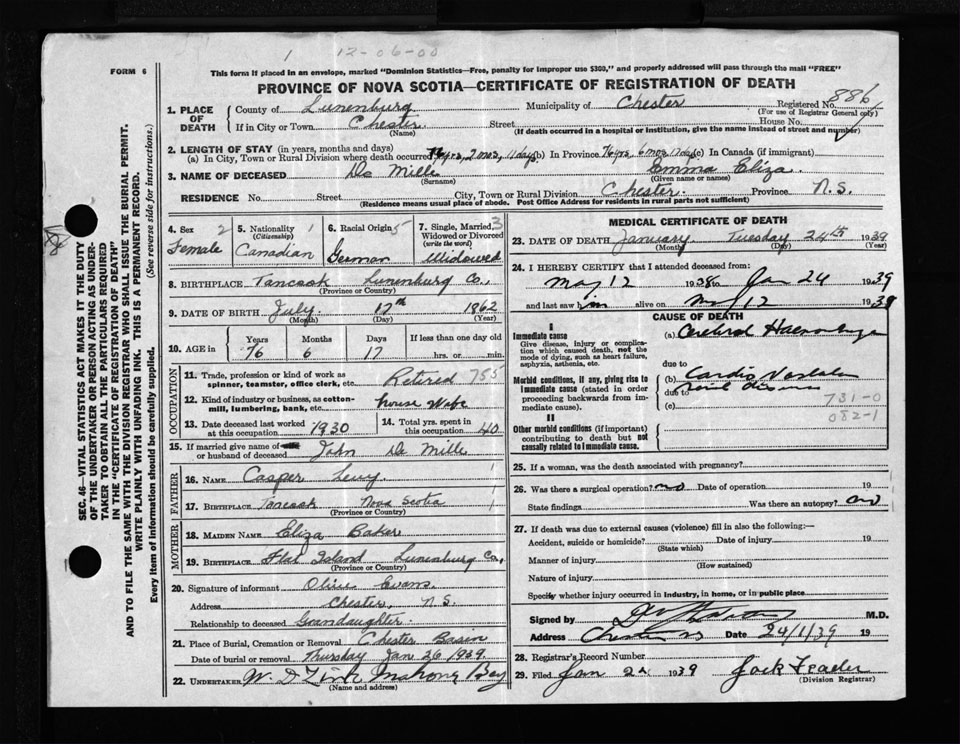 1 12-06-00
FORM 6
This form if placed in an envelope, marked "Dominion Statistics—Free, penalty for improper use $300," and properly addressed will pass through the mail "FREE"
PROVINCE OF NOVA SCOTIA—CERTIFICATE OF REGISTRATION OF DEATH
1. PLACE OF DEATH County of Lunenburg Municipality of Chester Registered No. 886
(For use of Registrar General only)
If in City or Town Chester Street House No.
(Name) (If death occurred in a hospital or institution, give the name instead of street and number)
2. LENGTH OF STAY (in years, months and days)
(a) In City, Town or Rural Division where death occurred yrs, 2 mos, 11 days (b) In Province 76 yrs, 6 mos 17 days (c) In Canada (if immigrant)
3. NAME OF DECEASED De Mille Emma Eliza
(Surname) (Given name or names)
RESIDENCE No. Street City, Town or Rural Division Chester. Province N.S.
(Residence means usual place of abode. Post Office Address for residents in rural parts not sufficient)
4. Sex 2 Female
5. Nationality (Citizenship) 1 Canadian
6. Racial Origin 5 German
7. Single, Married, Widowed or Divorced (write the word) 3 Widowed
8. BIRTHPLACE Tancook Lunenburg Co.,
(Province or Country)
9. DATE OF BIRTH July 17th 1862
(Month) (Day) (Year)
10. AGE in Years Months Days If less than one day
76 6 17 hrs. or min.
OCCUPATION
11. Trade, profession or kind of work as spinner, teamster, office clerk, etc. Retired 755
12. Kind of industry or business, as cotton-mill, lumbering, bank, etc. house wife
13. Date deceased last worked at this occupation 1930
14. Total yrs. spent in this occupation 40
15. If married give name of or husband of deceased John De Mille
FATHER
16. NAME Casper Levy
17. BIRTHPLACE Tancook Nova Scotia
(Province or Country)
MOTHER
18. MAIDEN NAME Eliza Baker
19. BIRTHPLACE Flat Island Lunenburg Co,
(Province or Country)
20. Signature of informant Evans
Address Chester, N.S.
Relationship to deceased Grandaughter
21. Place of Burial, Cremation or Removal Chester Basin
Date of burial or removal Thursday Jan 26 1939.
22. UNDERTAKER W. D. Zink Mahone Bay
(Name and address)
MEDICAL CERTIFICATE OF DEATH
23. DATE OF DEATH January Tuesday 24th 1939
(Month) (Day)
24. I HEREBY CERTIFY that I attended deceased from:
May 12 1938 to Jan 24 1939
and last saw h alive on May 12 1938
CAUSE OF DEATH
I
Immediate cause
Give disease, injury or complication which caused death, not the mode of dying, such as heart failure, asphyxia, asthenia, etc.
(a) Cerebral Haemorrhage
due to
Morbid conditions, if any, giving rise to immediate cause (stated in order proceeding backwards from immediate cause).
(b) Cardio Vascular
due to
Renal Disease
(c)
731-0
082-1
II
Other morbid conditions (if important) contributing to death but not causally related to immediate cause.
25. If a woman, was the death associated with pregnancy?
26. Was there a surgical operation? no Date of operation 19
State findings Was there an autopsy? no
27. If death was due to external causes (violence) fill in also the following:—
Accident, suicide or homicide? Date of injury 19
(State which)
Manner of injury
(How sustained)
Nature of injury
Specify whether injury occurred in industry, in home, or in public place
Signed by M.D.
Address Date 24/1/39 19
28. Registrar's Record Number
29. Filed Jan 1939 Jack Feader
(Division Registrar)
SEC. 46—VITAL STATISTICS ACT MAKES IT THE DUTY OF THE UNDERTAKER OR PERSON ACTING AS UNDERTAKER TO OBTAIN ALL THE PARTICULARS REQUIRED IN THE "CERTIFICATE OF REGISTRATION OF DEATH" AND TO FILE THE SAME WITH THE DIVISION REGISTRAR WHO SHALL ISSUE THE BURIAL PERMIT.
WRITE PLAINLY WITH UNFADING INK. THIS IS A PERMANENT RECORD.
Every item of information should be carefully supplied. (See reverse side for instructions.)